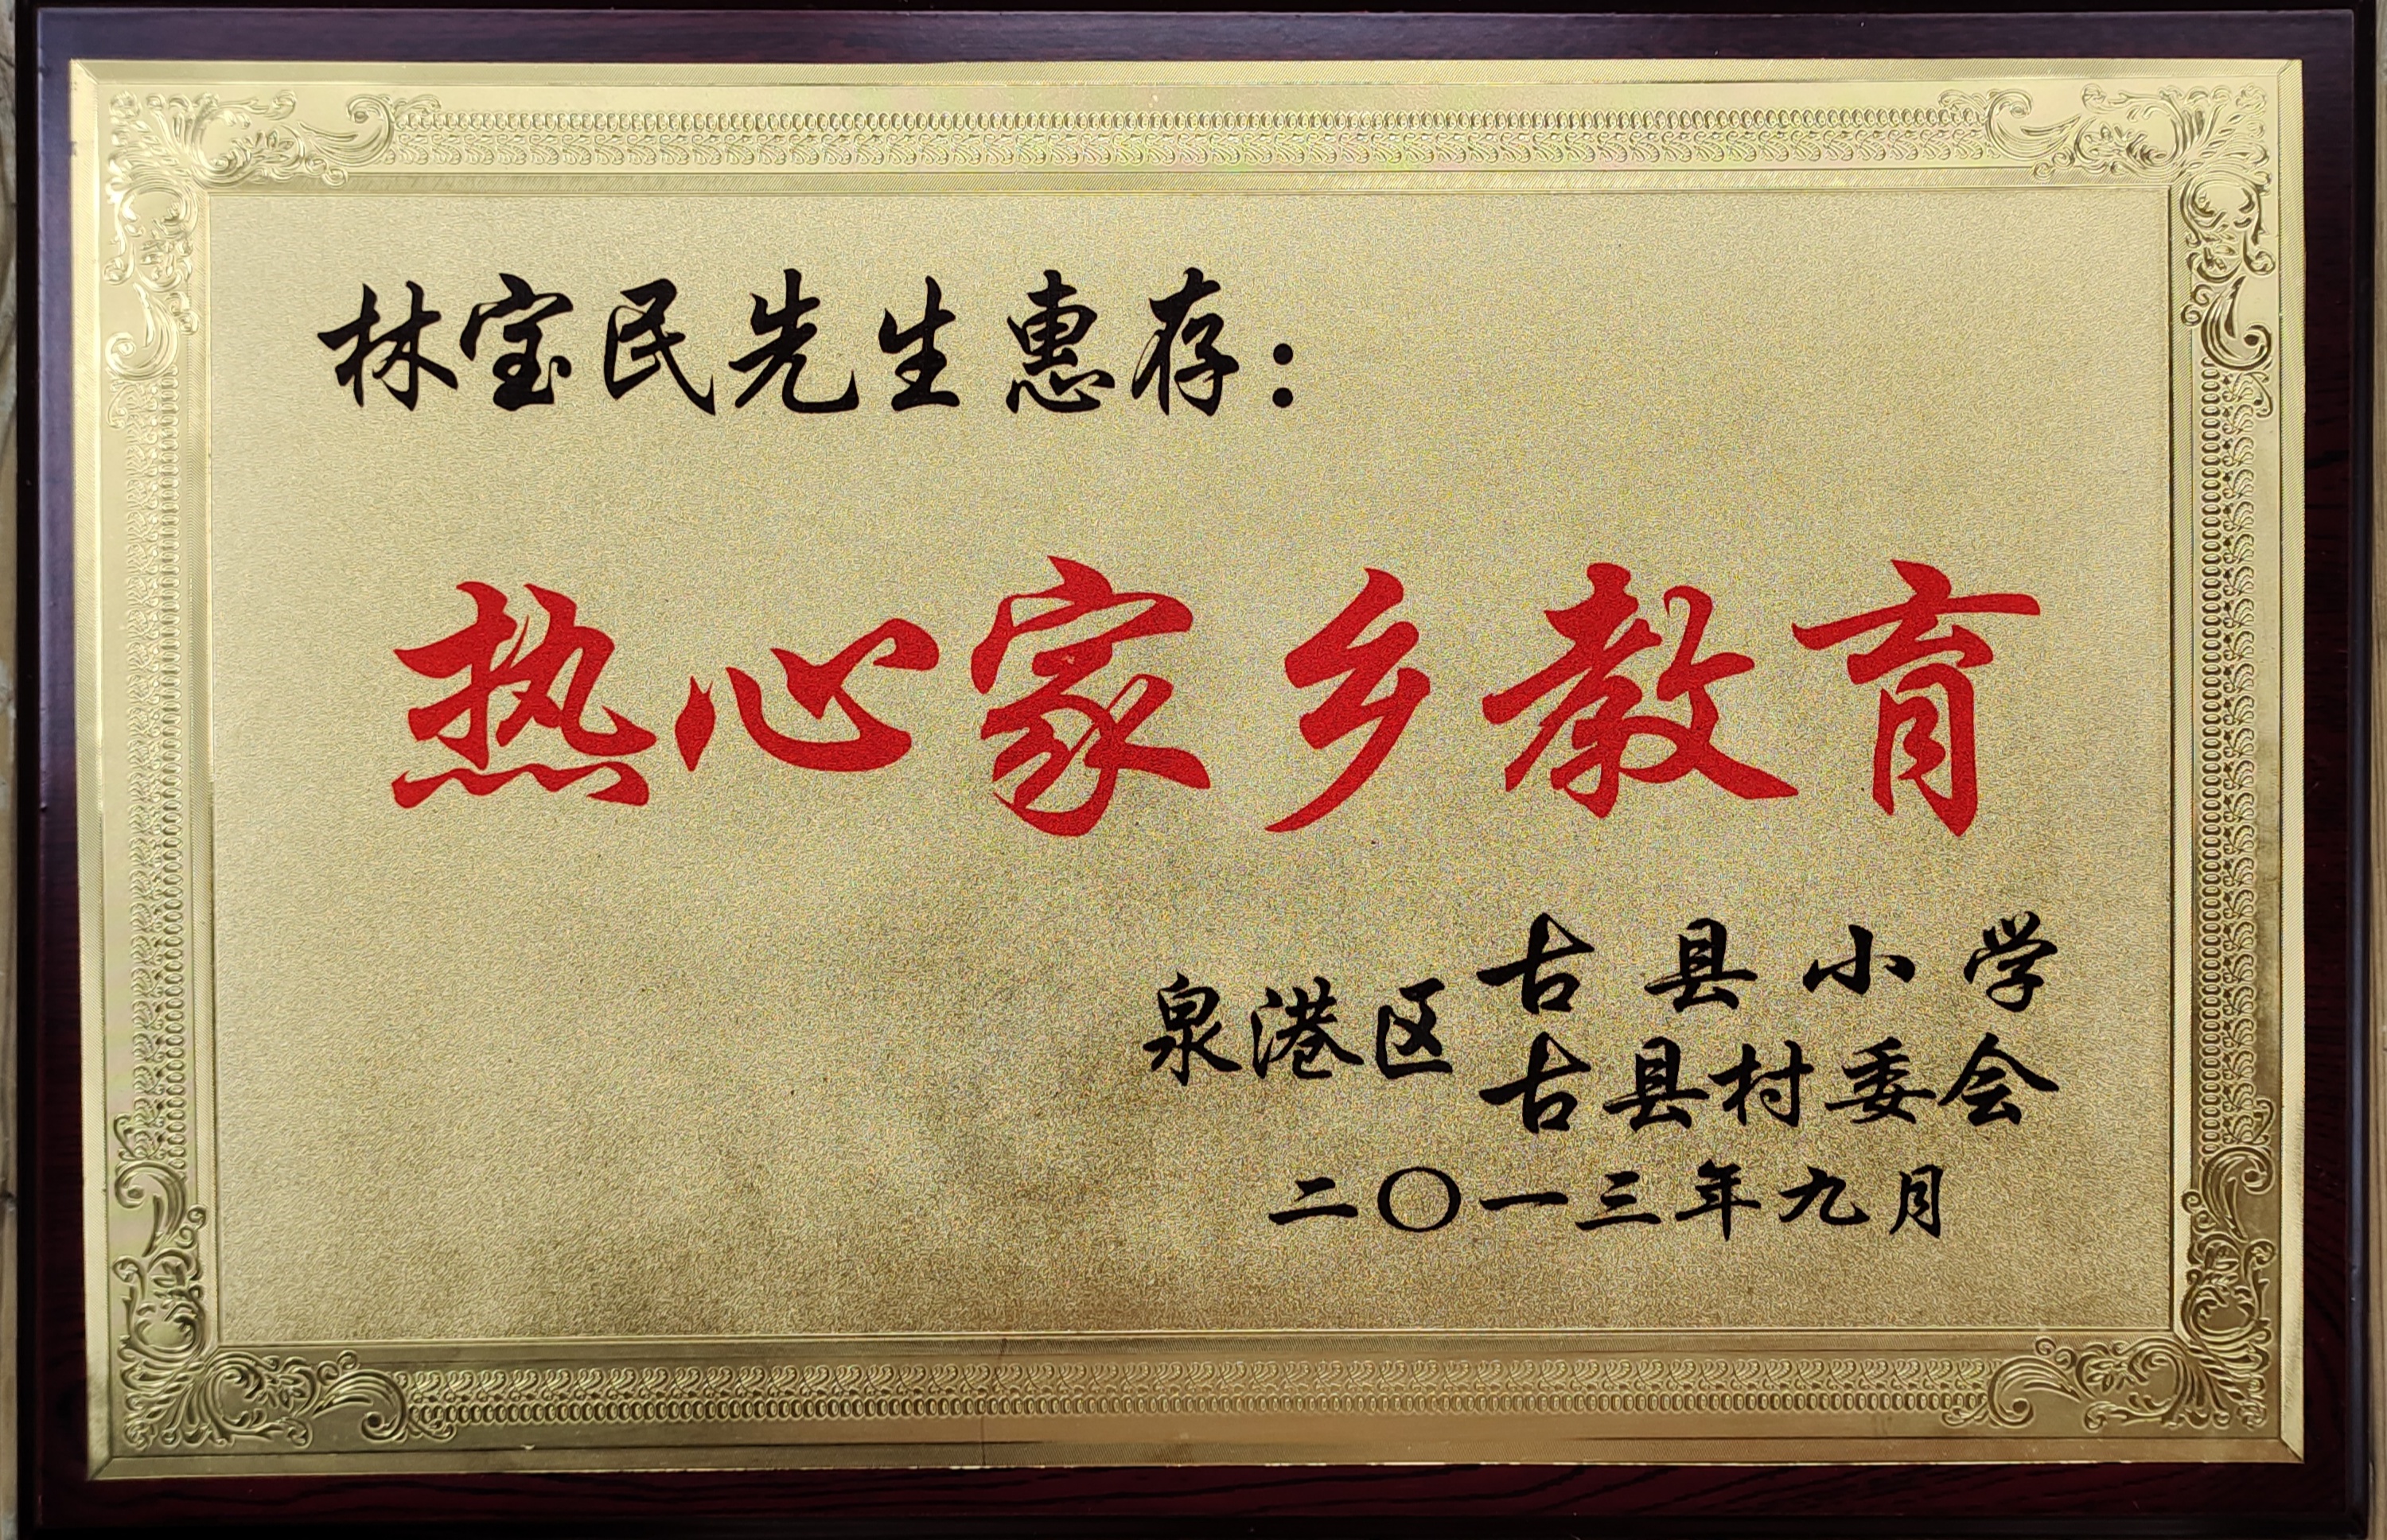 林宝民先生惠存：
热心家乡教育
泉港区
古县小学
古县村委会
二〇一三年九月